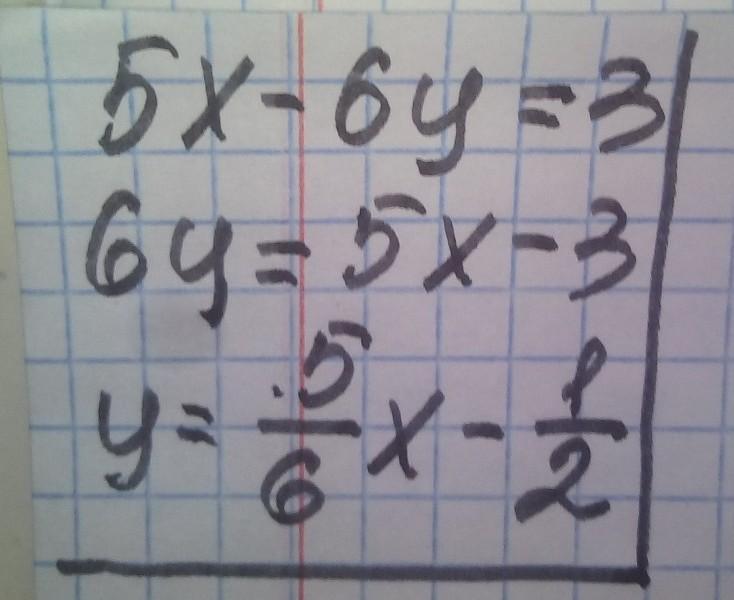 5x - 6y = 3
6y = 5x - 3
y = 5/6 x - 1/2